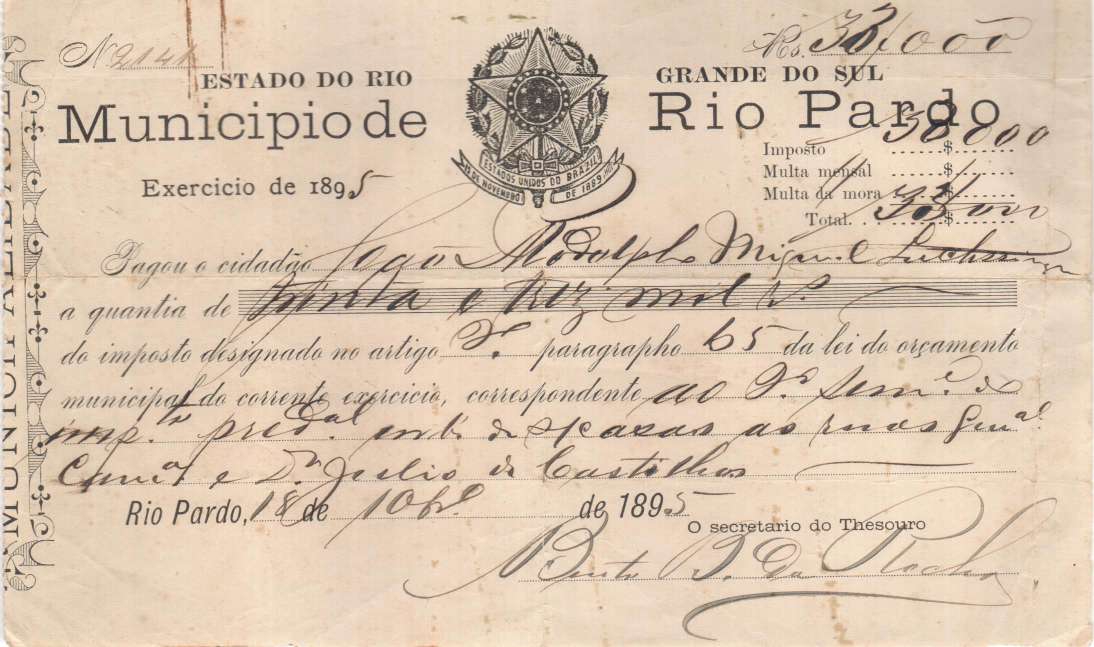 Nº 2141
Rs. 33,000
ESTADO DO RIO GRANDE DO SUL
Municipio de Rio Pardo
Exercicio de 1895
ESTADOS UNIDOS DO BRAZIL
15 DE NOVEMBRO DE 1889
Imposto 30$000
Multa mensal $
Multa da mora 3$
Total. 33$000
Pagou o cidadão João Adolpho Miguel
a quantia de trinta e trez mil rs.
do imposto designado no artigo paragrapho 65 da lei do orçamento
municipal do corrente exercicio, correspondente ao 2º sem.e de
imp.to pred.al urb. de casas as ruas Gen.al
Cam.a e Dr. Julio de Castilhos
Rio Pardo, 18 de 10br.o de 1895
O secretario do Thesouro
Bento B. da Rocha
MUNICIPALIDADE